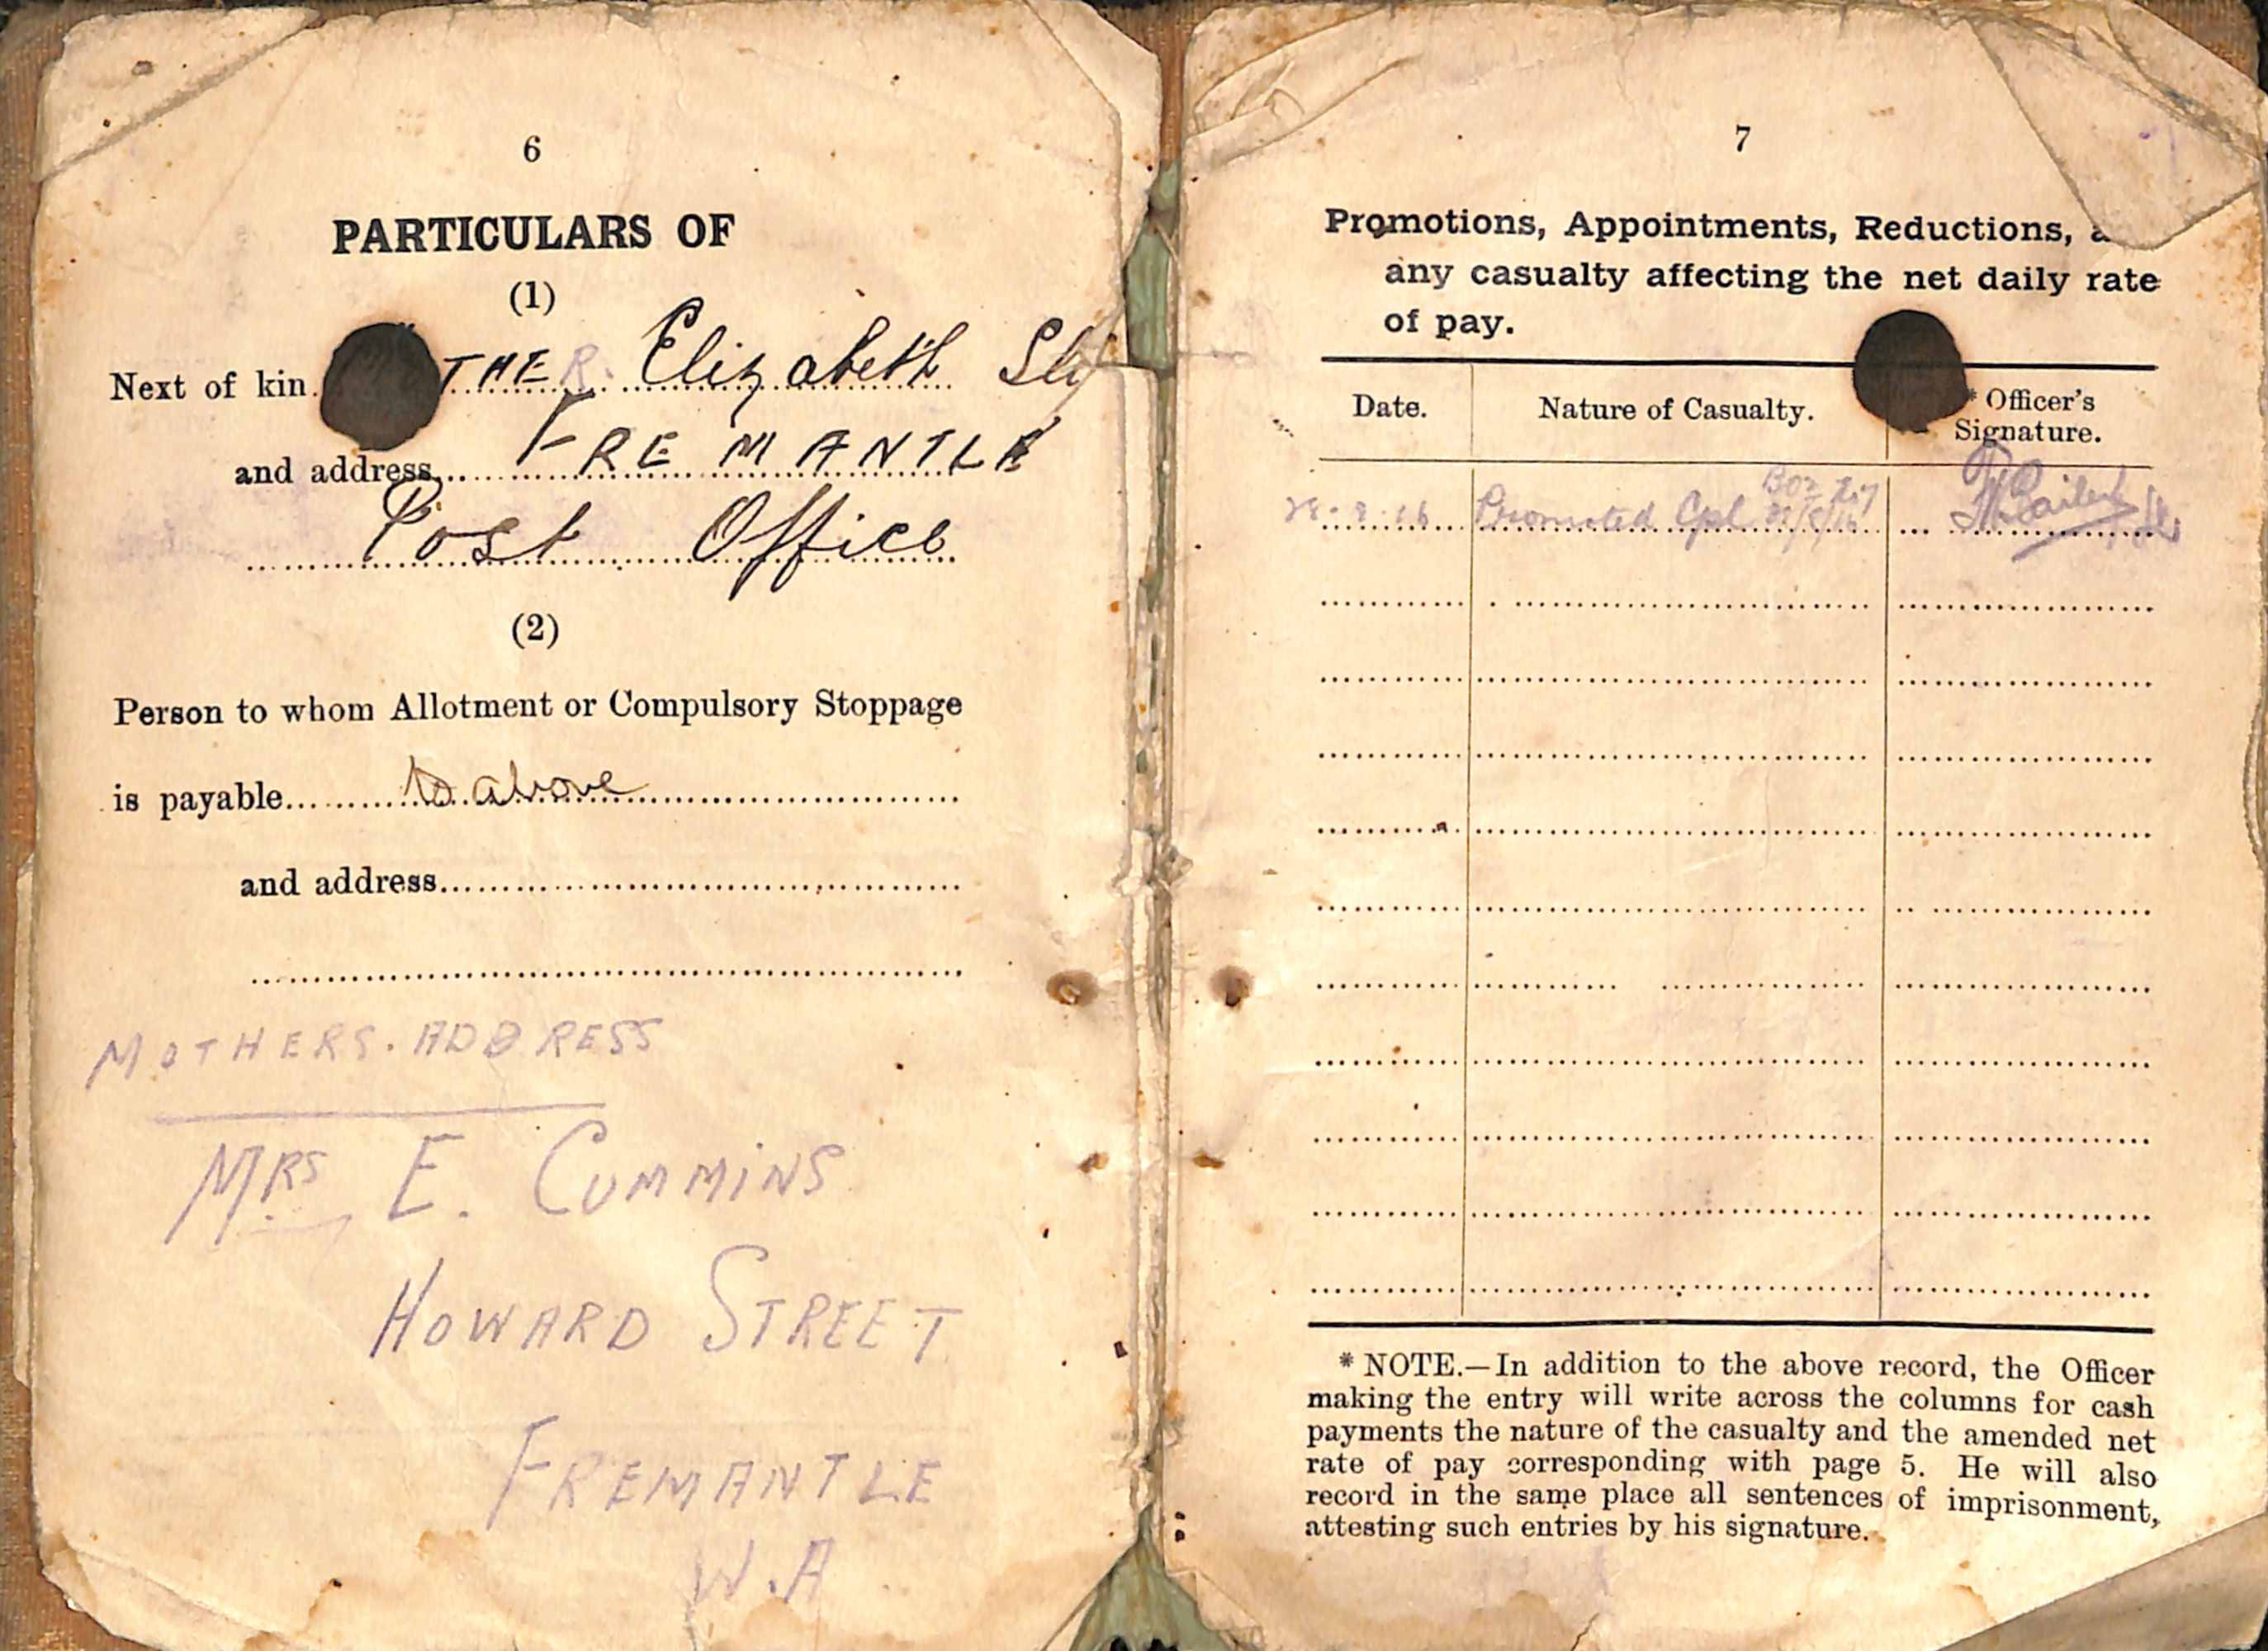 6
PARTICULARS OF
(1)
Next of kin. THER. Elizabeth
and address FREMANTLE
Post Office
(2)
Person to whom Allotment or Compulsory Stoppage
is payable to above
and address
MOTHERS. ADDRESS
MRS E. CUMMINS
HOWARD STREET
FREMANTLE
W.A
7
Promotions, Appointments, Reductions, a
any casualty affecting the net daily rate
of pay.
Date. Nature of Casualty. * Officer's Signature.
Promoted Cpl
* NOTE.—In addition to the above record, the Officer
making the entry will write across the columns for cash
payments the nature of the casualty and the amended net
rate of pay corresponding with page 5. He will also
record in the same place all sentences of imprisonment,
attesting such entries by his signature.